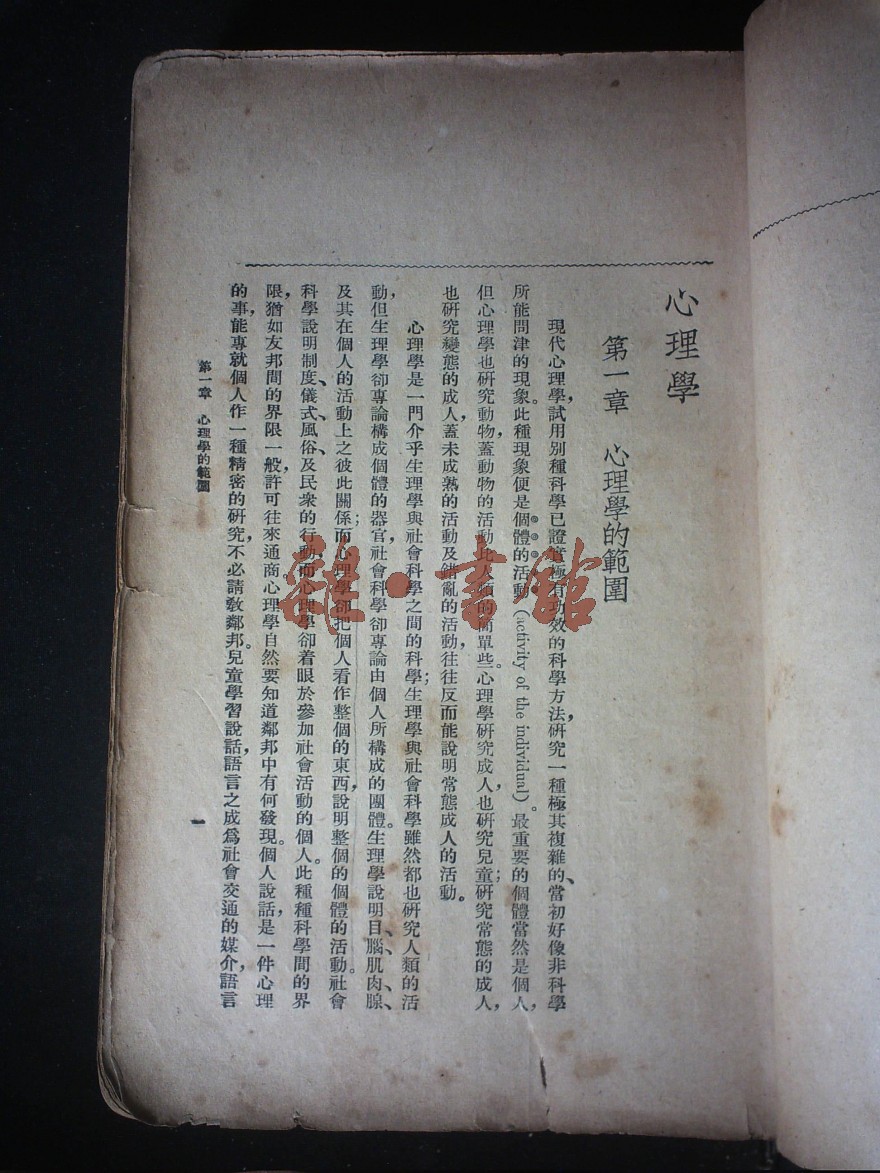 心理學
第一章　心理學的範圍
現代心理學，試用別種科學已證實極有功效的科學方法，研究一種極其複雜的、當初好像非科學
所能問津的現象。此種現象便是個體的活動 (activity of the individual)。最重要的個體當然是個人，
但心理學也研究動物，蓋動物的活動比人類的簡單些。心理學研究成人，也研究兒童；研究常態的成人，
也研究變態的成人，蓋未成熟的活動及錯亂的活動，往往反而能說明常態成人的活動。
心理學是一門介乎生理學與社會科學之間的科學；生理學與社會科學雖然都也研究人類的活
動，但生理學卻專論構成個體的器官，社會科學卻專論由個人所構成的團體。生理學說明目、腦、肌肉、腺、
及其在個人的活動上之彼此關係；而心理學卻把個人看作整個的東西，說明整個的個體的活動。社會
科學說明制度、儀式、風俗、及民衆的行動，而心理學卻着眼於參加社會活動的個人。此種種科學間的界
限，猶如友邦間的界限一般，許可往來通商。心理學自然要知道鄰邦中有何發現。個人說話，是一件心理
的事，能專就個人作一種精密的研究，不必請敎鄰邦。兒童學習說話，語言之成爲社會交通的媒介，語言
第一章　心理學的範圍
一
雜·書館